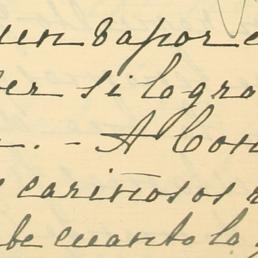 un vapor
si logra
. - A Con
cariñosos
be cuanto lo